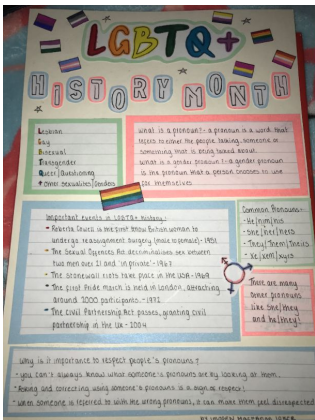 LGBTQ+
HISTORY MONTH
Lesbian
Gay
Bisexual
Transgender
Queer/Questioning
+ other sexualites/Genders
what is a pronoun? - a pronoun is a word that
refers to either the people talking, someone or
something that is being talked about.
what is a gender pronoun? - a gender pronoun
is the pronoun that a person chooses to use
for themselves
Important events in LGBTQ+ history:
- Roberta Cowell is the first know British woman to
undergo reassignment surgery (male to female) - 1951
- The Sexual Offences Act decriminalises sex between
two men over 21 and 'in private' - 1967
- The stonewall riots take place in the USA - 1969
- The first Pride march is held in London, attracting
around 2000 participants. - 1972
- The Civil Partnership Act passes, granting civil
partnership in the UK - 2004
Common Pronouns -
- He/him/his
- she/her/hers
- They/Them/Theirs
- Xe/xem/xyrs
There are many
other pronouns
like she/they
and he/they!
Why is it importance to respect people's pronouns?
- you can't always know what someone's pronouns are by looking at them.
- Asking and correcting using someone's pronouns is a sign of respect!
- when someone is referred to with the wrong pronouns, it can make them feel disrespected
BY IMOGEN